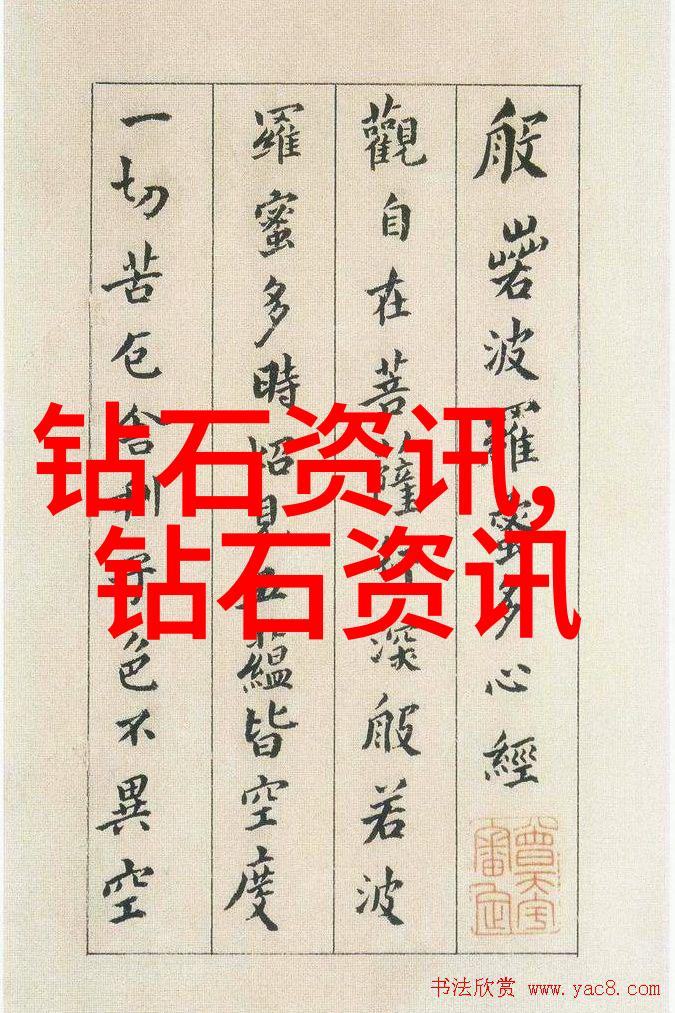 般若波羅蜜多心經
觀自在菩薩行深般若波
羅蜜多時炤見五蘊皆空度
一切苦厄舍利子色不異空
钻石资讯,
钻石资讯
书法欣赏 www.yac8.com